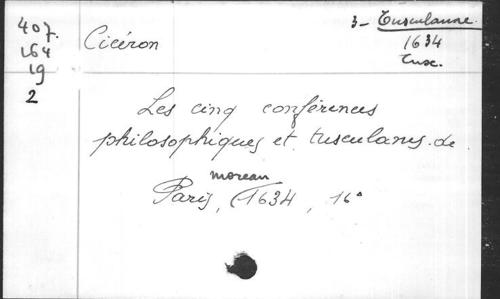 407.
164
19
2
Cicéron
3- Tusculanne
1634
Tusc.
Les cinq conférences
philosophiques et tusculanes. de
moreau
Paris, 1634, 16°